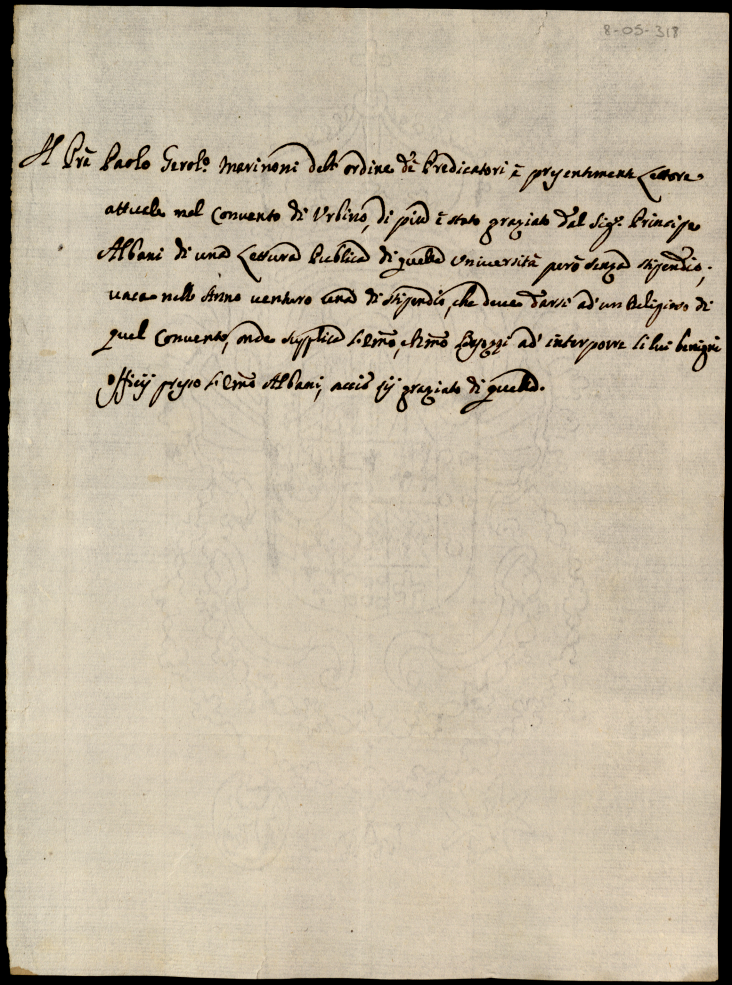 8-05-318
Il Prē Paolo Gerol.º Marinoni dell' ordine de Predicatori è presentemente Lettore
attuale nel Convento di Urbino, di più è stato graziato dal Sig.r Principe
Albani di una Lettura Publica di quella Università però senza stipendio;
vaca nello Anno venturo una di stipendio, che deve darsi ad' un Religioso di
quel Convento, onde supplica l'Emō, e Rmō ad' interporre li lui benigni
Officij presso l'Emō Albani, acciò sij graziato di quella.